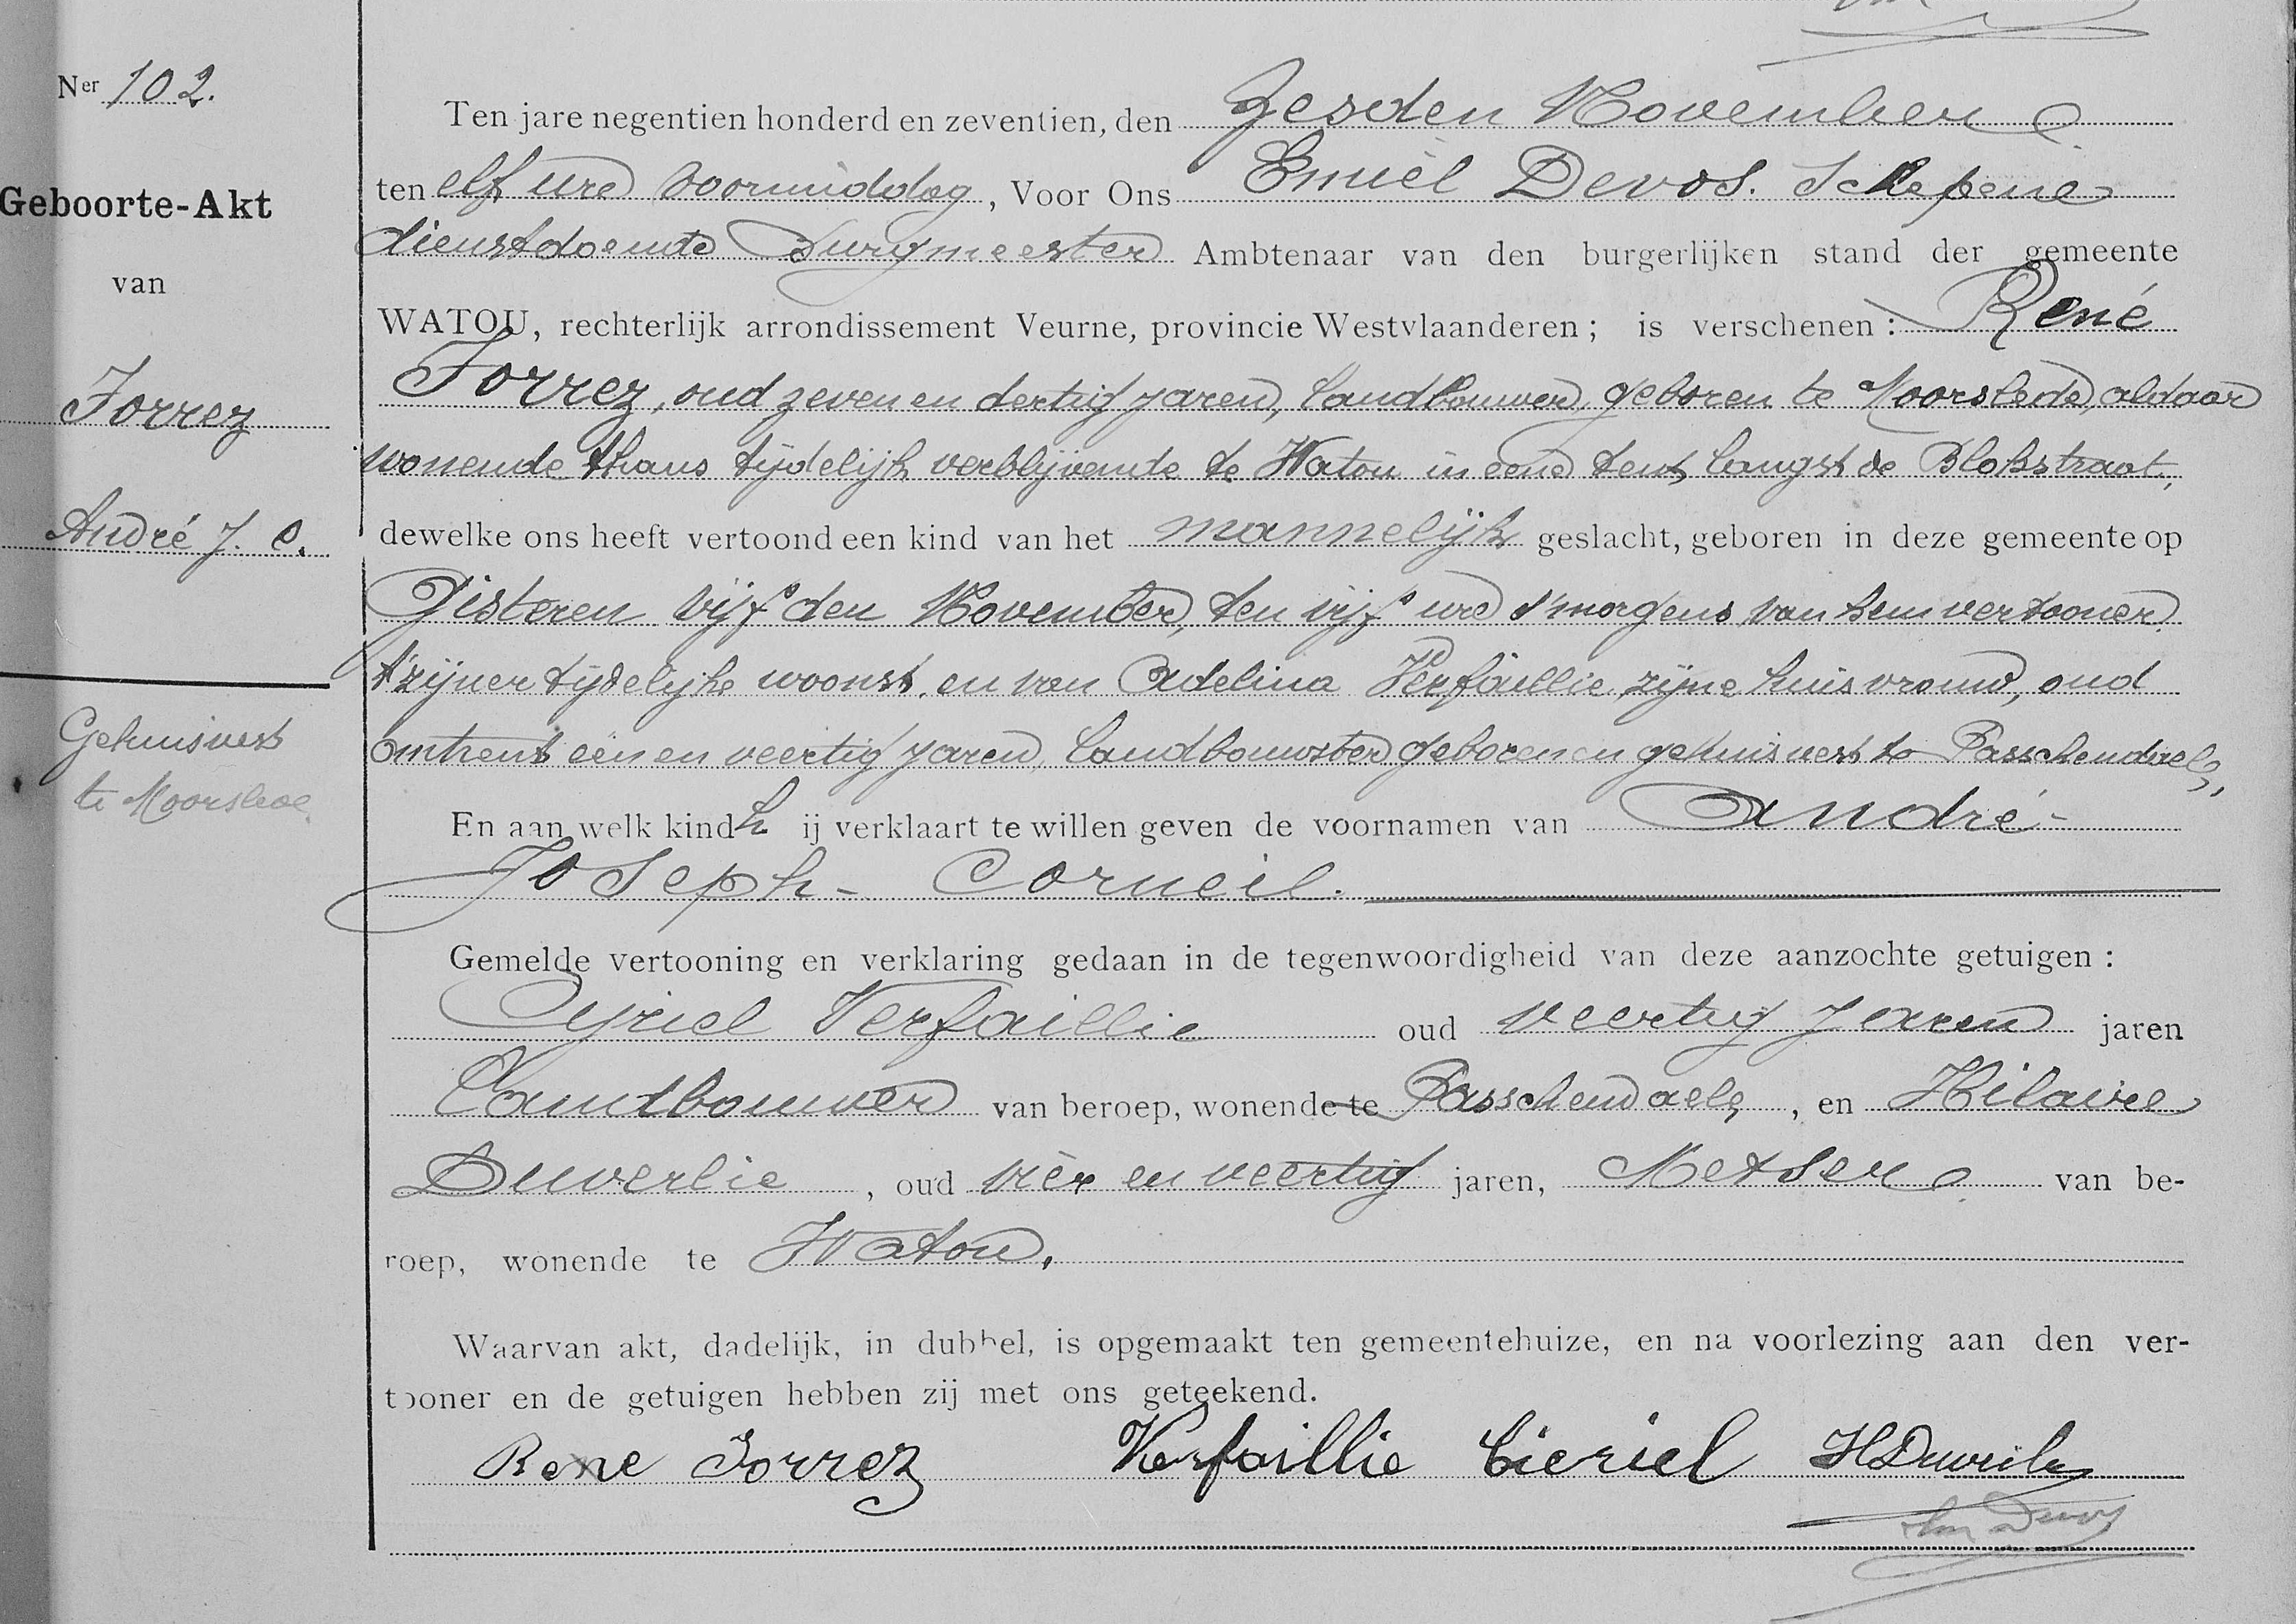 Ner 102.
Geboorte-Akt
van
Forrez
André J. C.
Gehuisvest
te Moorslede
Ten jare negentien honderd en zeventien, den Zesden November
ten elf ure voormiddag, Voor Ons Emiel Devos. Schepene
dienstdoende Burgmeester Ambtenaar van den burgerlijken stand der gemeente
WATOU, rechterlijk arrondissement Veurne, provincie Westvlaanderen ; is verschenen : René
Forrez, oud zeven en dertig jaren, landbouwer, geboren te Moorslede, aldaar
wonende thans tijdelijk verblijvende te Watou in eene tent, langst de Blokstraat,
dewelke ons heeft vertoond een kind van het mannelijk geslacht, geboren in deze gemeente op
Gisteren vijfden November, ten vijf ure s'morgens, van hem vertooner
t'zijner tijdelijke woonst, en van Adelina Verfaillie, zijne huisvrouw, oud
omtrent een en veertig jaren, landbouwster, geboren en gehuisvest te Passchendaele,
En aan welk kind hij verklaart te willen geven de voornamen van André-
Joseph- Corneil.
Gemelde vertooning en verklaring gedaan in de tegenwoordigheid van deze aanzochte getuigen :
Cyriel Verfaillie oud veertig jaren jaren
Landbouwer van beroep, wonende te Passchendaele, en Hilaire
Duverlie, oud vier en veertig jaren, Metser van be-
roep, wonende te Watou.
Waarvan akt, dadelijk, in dubbel, is opgemaakt ten gemeentehuize, en na voorlezing aan den ver-
tooner en de getuigen hebben zij met ons geteekend.
Rene Forrez Verfaillie Cieriel H Duverlie
Em Devos